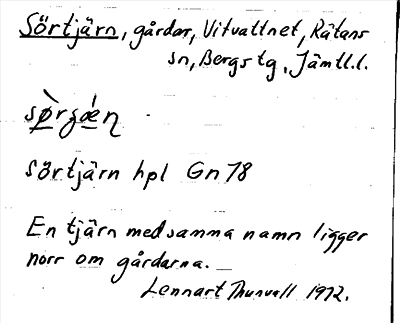 Sörtjärn, gårdar, Vitvattnet, Rätans
sn, Bergs tg, Jämtl.l.
sø̀rʒǽɳ
Sörtjärn hpl Gn 78
En tjärn med samma namn ligger
norr om gårdarna.
Lennart Thunvall 1972.